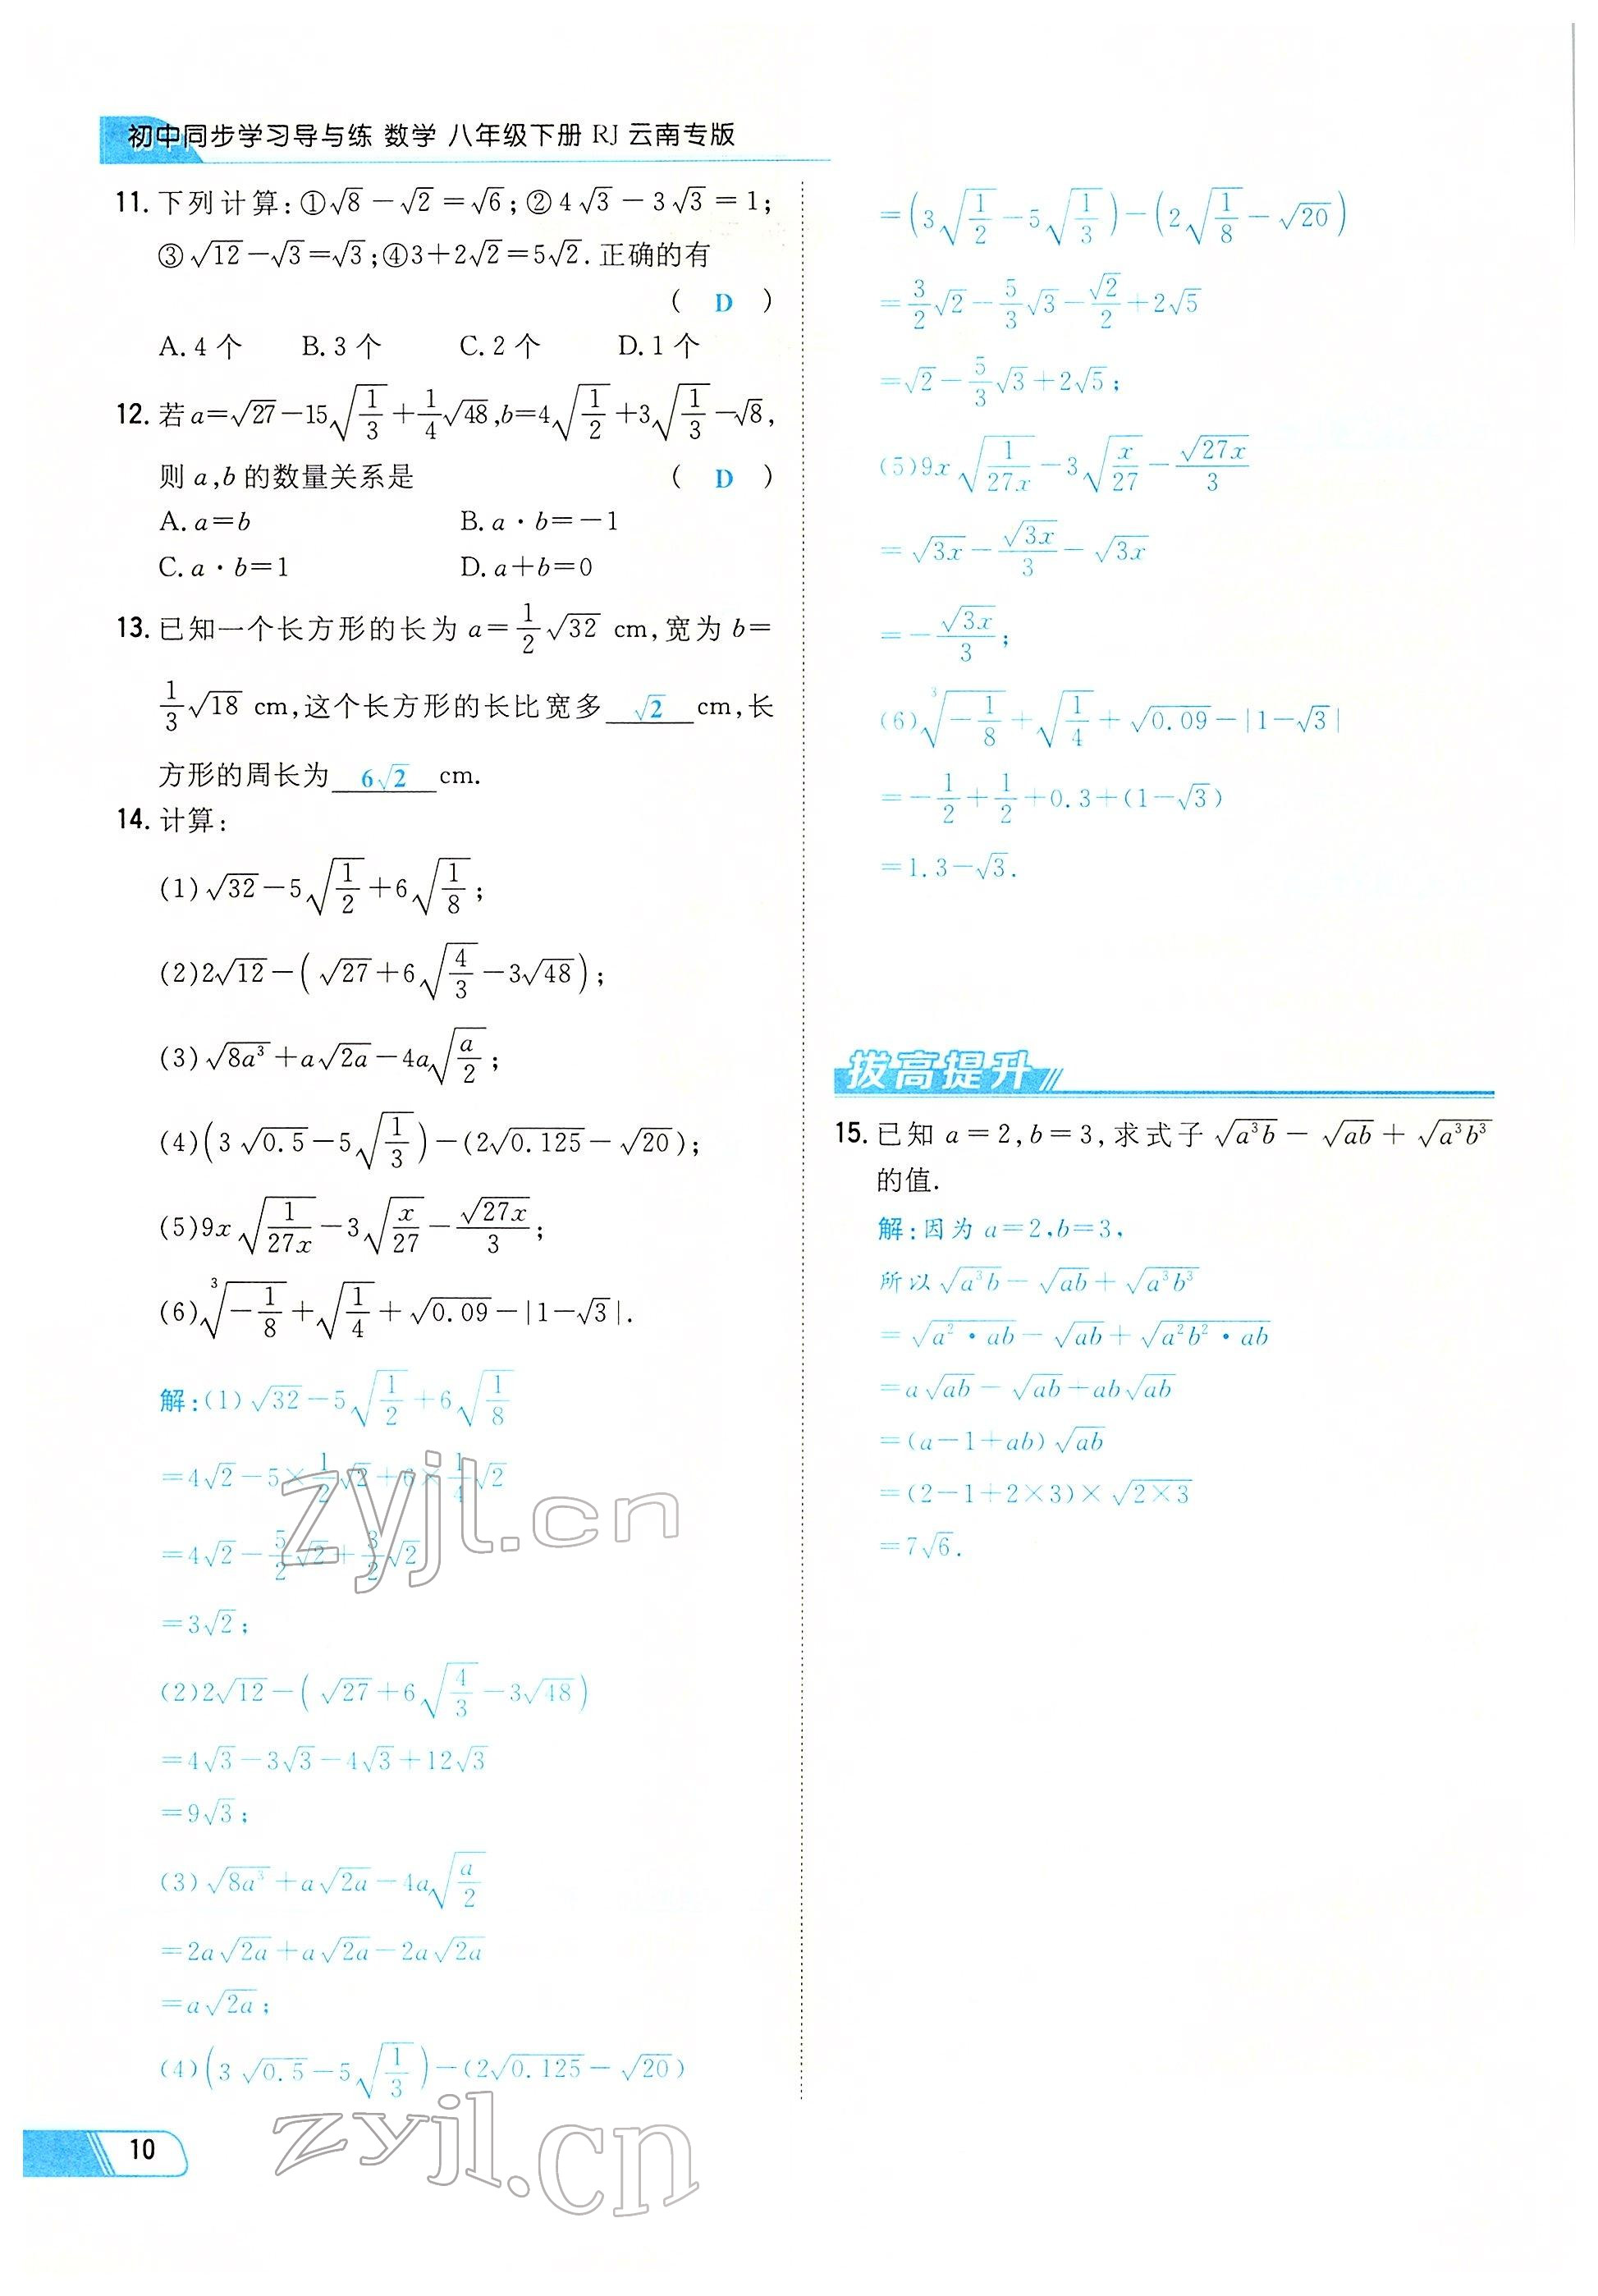 初中同步学习导与练 数学 八年级下册 RJ 云南专版
11. 下列计算：①√8－√2＝√6；②4√3－3√3＝1；
③√12－√3＝√3；④3＋2√2＝5√2. 正确的有
（ D ）
A. 4 个 B. 3 个 C. 2 个 D. 1 个
12. 若 a＝√27－15√(1/3)＋1/4√48，b＝4√(1/2)＋3√(1/3)－√8，
则 a，b 的数量关系是 （ D ）
A. a＝b B. a·b＝－1
C. a·b＝1 D. a＋b＝0
13. 已知一个长方形的长为 a＝1/2√32 cm，宽为 b＝
1/3√18 cm，这个长方形的长比宽多 √2 cm，长
方形的周长为 6√2 cm.
14. 计算：
(1)√32－5√(1/2)＋6√(1/8)；
(2)2√12－(√27＋6√(4/3)－3√48)；
(3)√(8a³)＋a√(2a)－4a√(a/2)；
(4)(3√0.5－5√(1/3))－(2√0.125－√20)；
(5)9x√(1/(27x))－3√(x/27)－√(27x)/3；
(6)³√(－1/8)＋√(1/4)＋√0.09－|1－√3|.
解：(1)√32－5√(1/2)＋6√(1/8)
＝4√2－5×1/2√2＋6×1/4√2
＝4√2－5/2√2＋3/2√2
＝3√2；
(2)2√12－(√27＋6√(4/3)－3√48)
＝4√3－3√3－4√3＋12√3
＝9√3；
(3)√(8a³)＋a√(2a)－4a√(a/2)
＝2a√(2a)＋a√(2a)－2a√(2a)
＝a√(2a)；
(4)(3√0.5－5√(1/3))－(2√0.125－√20)
＝(3√(1/2)－5√(1/3))－(2√(1/8)－√20)
＝3/2√2－5/3√3－√2/2＋2√5
＝√2－5/3√3＋2√5；
(5)9x√(1/(27x))－3√(x/27)－√(27x)/3
＝√(3x)－√(3x)/3－√(3x)
＝－√(3x)/3；
(6)³√(－1/8)＋√(1/4)＋√0.09－|1－√3|
＝－1/2＋1/2＋0.3＋(1－√3)
＝1.3－√3.
拔高提升
15. 已知 a＝2，b＝3，求式子 √(a³b)－√(ab)＋√(a³b³)
的值.
解：因为 a＝2，b＝3，
所以 √(a³b)－√(ab)＋√(a³b³)
＝√(a²·ab)－√(ab)＋√(a²b²·ab)
＝a√(ab)－√(ab)＋ab√(ab)
＝(a－1＋ab)√(ab)
＝(2－1＋2×3)×√(2×3)
＝7√6.
zyjl.cn
zyjl.cn
10